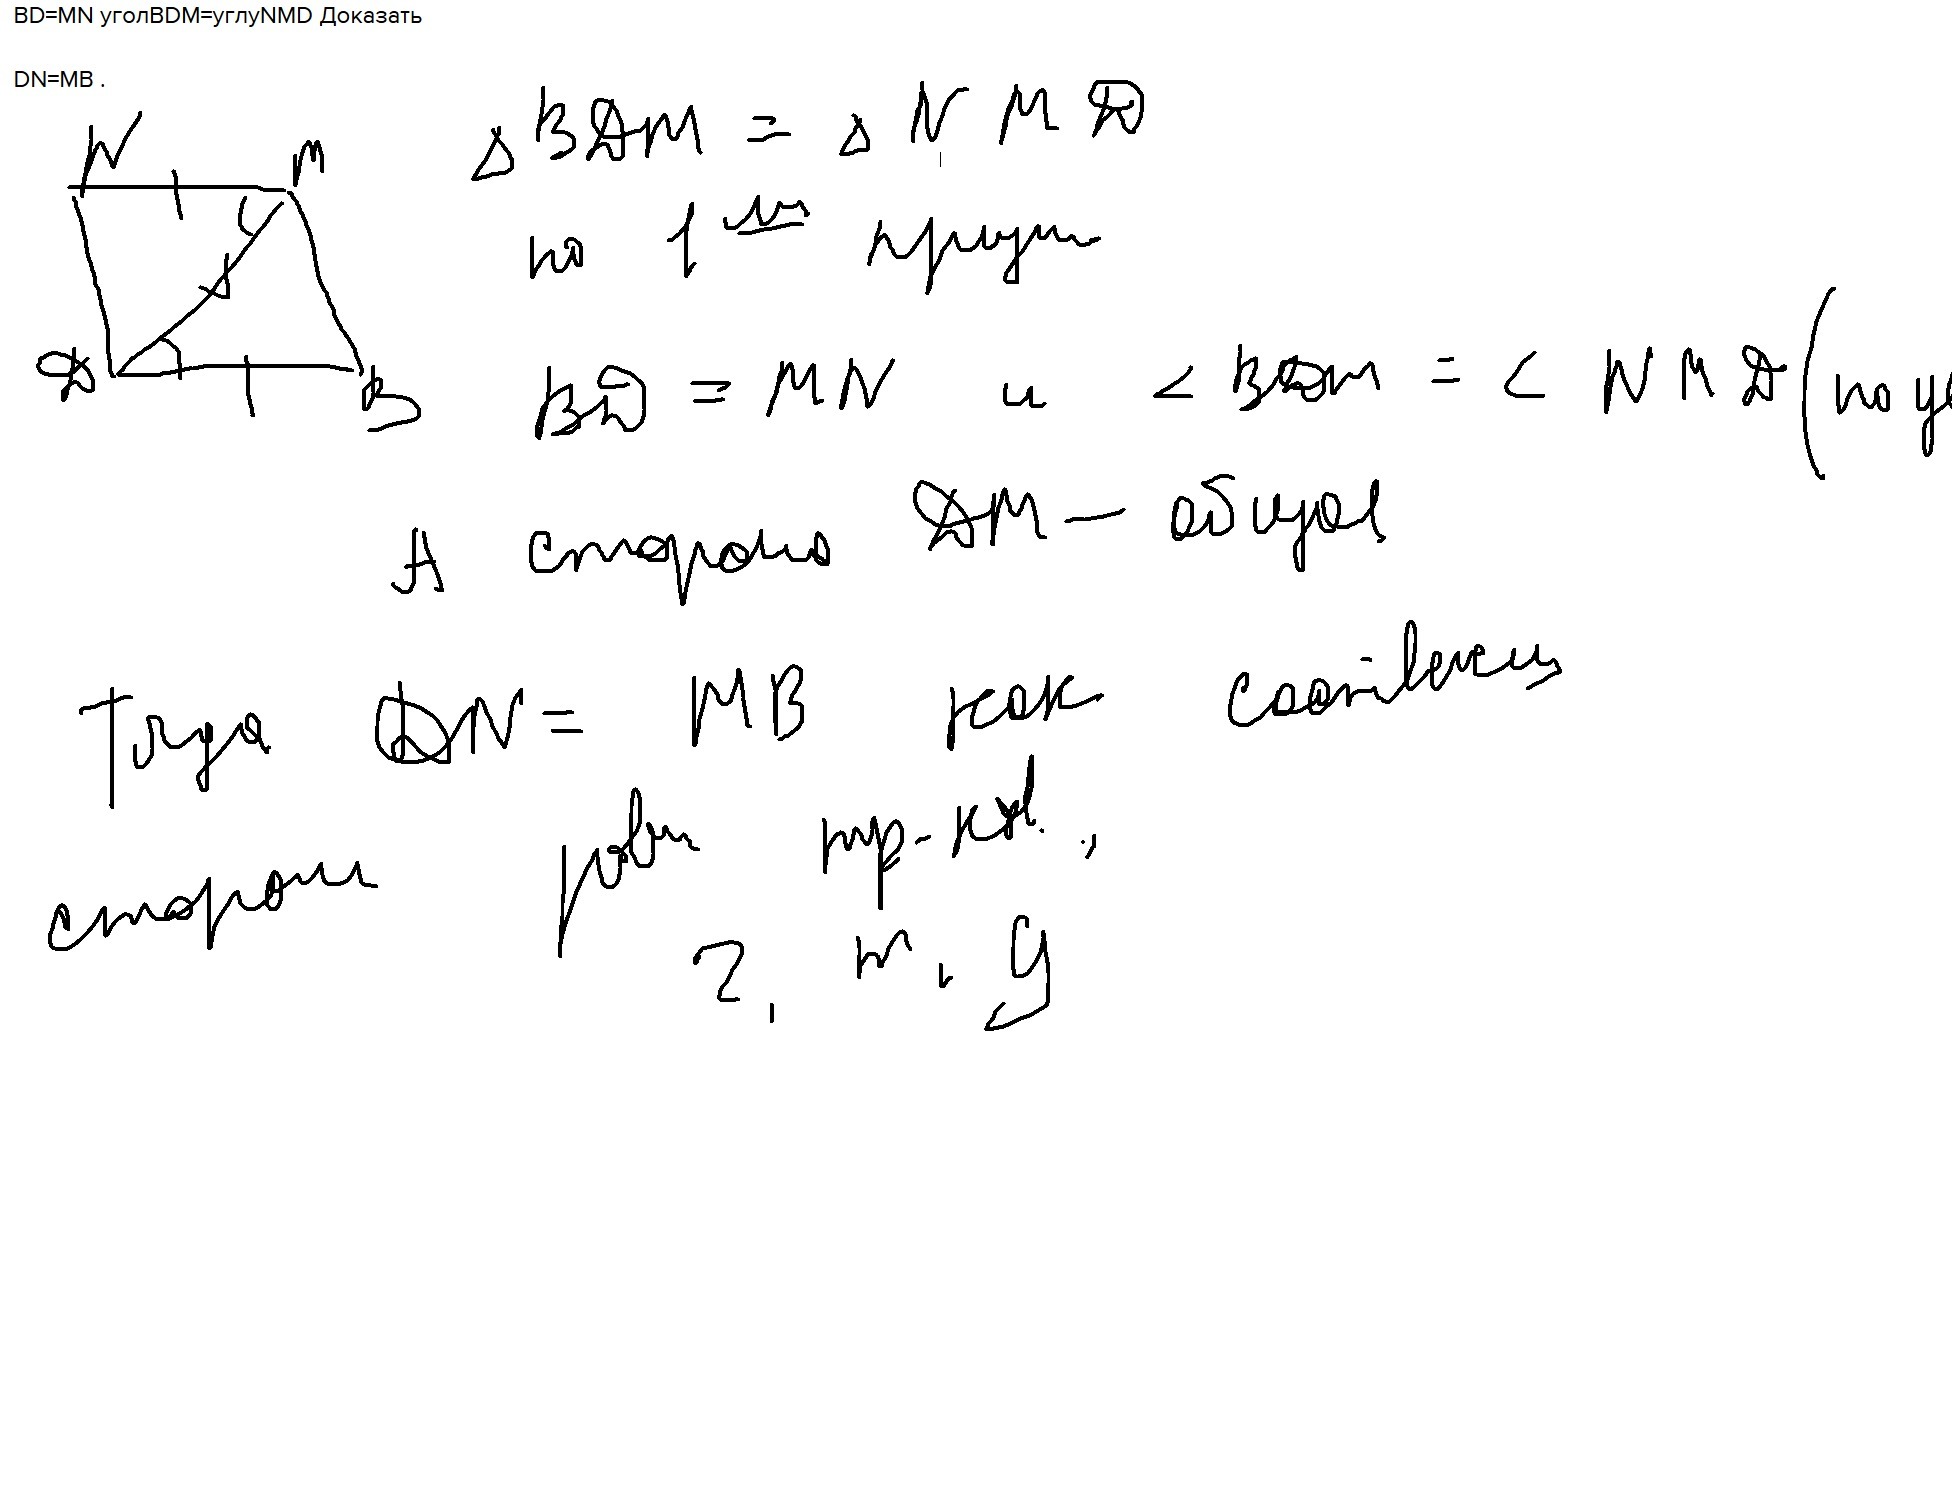 BD=MN уголBDM=углуNMD Доказать
DN=MB .
N
M
D
B
△ BDM = △ NMD
по 1
BD = MN и < BDM = < NMD (по ус
А сторона DM — общая
Тогда DN = MB как соответств
сторон равн тр-ков.,
ч. т. д